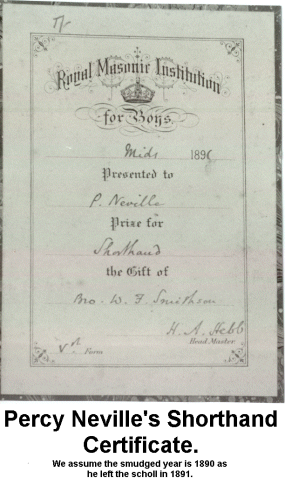 Royal Masonic Institution
for Boys.
Mids 189
Presented to
P. Neville
Prize for
Shorthand
the Gift of
Bro. W. F. Smithson
H. A. Hebb
Head Master.
Vth Form
Percy Neville's Shorthand
Certificate.
We assume the smudged year is 1890 as
he left the scholl in 1891.